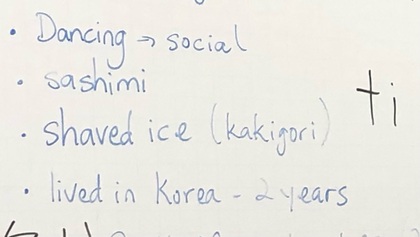 • Dancing → social
• sashimi
ti
• shaved ice (kakigori)
• lived in Korea - 2 years